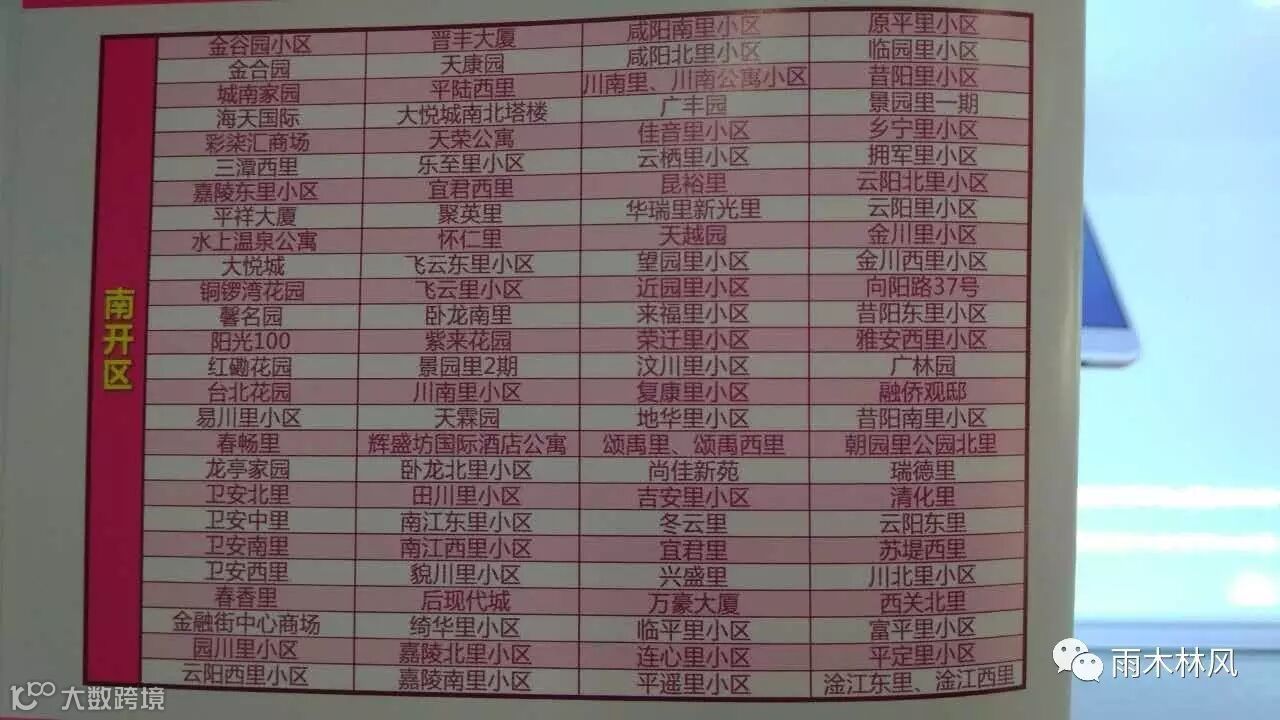 南开区
金谷园小区 晋丰大厦 咸阳南里小区 原平里小区
金合园 天康园 咸阳北里小区 临园里小区
城南家园 平陆西里 川南里、川南公寓小区 昔阳里小区
海天国际 大悦城南北塔楼 广丰园 景园里一期
彩柒汇商场 天荣公寓 佳音里小区 乡宁里小区
三潭西里 乐至里小区 云栖里小区 拥军里小区
嘉陵东里小区 宜君西里 昆裕里 云阳北里小区
平祥大厦 聚英里 华瑞里新光里 云阳里小区
水上温泉公寓 怀仁里 天越园 金川里小区
大悦城 飞云东里小区 望园里小区 金川西里小区
铜锣湾花园 飞云里小区 近园里小区 向阳路37号
馨名园 卧龙南里 来福里小区 昔阳东里小区
阳光100 紫来花园 荣迁里小区 雅安西里小区
红磡花园 景园里2期 汶川里小区 广林园
台北花园 川南里小区 复康里小区 融侨观邸
易川里小区 天霖园 地华里小区 昔阳南里小区
春畅里 辉盛坊国际酒店公寓 颂禹里、颂禹西里 朝园里公园北里
龙亭家园 卧龙北里小区 尚佳新苑 瑞德里
卫安北里 田川里小区 吉安里小区 清化里
卫安中里 南江东里小区 冬云里 云阳东里
卫安南里 南江西里小区 宜君里 苏堤西里
卫安西里 貌川里小区 兴盛里 川北里小区
春香里 后现代城 万豪大厦 西关北里
金融街中心商场 绮华里小区 临平里小区 富平里小区
园川里小区 嘉陵北里小区 连心里小区 平定里小区
云阳西里小区 嘉陵南里小区 平遥里小区 淦江东里、淦江西里
雨木林风
大数跨境